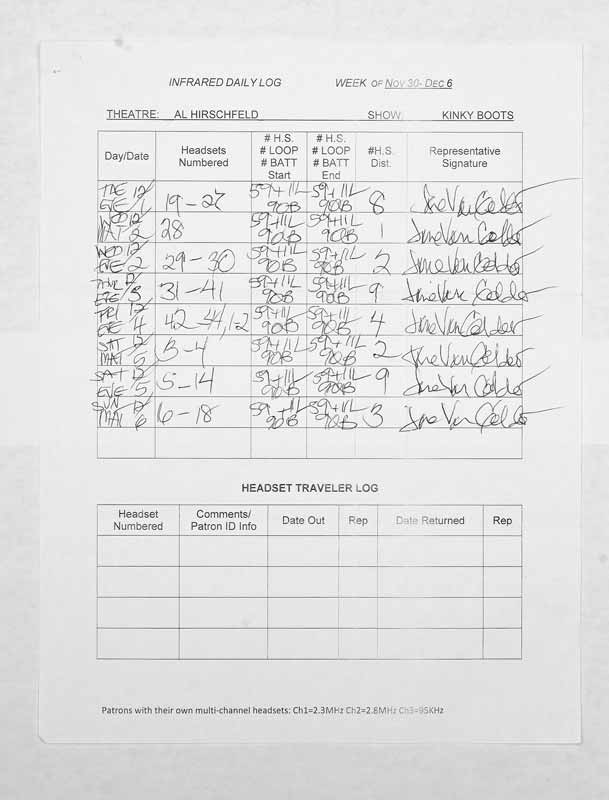 INFRARED DAILY LOG WEEK OF NOV 30- DEC 6
THEATRE: AL HIRSCHFELD SHOW: KINKY BOOTS
Day/Date Headsets Numbered # H.S. # LOOP # BATT Start # H.S. # LOOP # BATT End #H.S. Dist. Representative Signature
TUE 12/1 EVE 19-27 59+11L 90B 59+11L 90B 8 Jane Van Gelder
WED 12/2 MAT 28 59+11L 90B 59+11L 90B 1 Jane Van Gelder
WED 12/2 EVE 29-30 59+11L 90B 59+11L 90B 2 Jane Van Gelder
THUR 12/3 EVE 31-41 59+11L 90B 59+11L 90B 9 Jane Van Gelder
FRI 12/4 EVE 42-44,1-2 59+11L 90B 59+11L 90B 4 Jane Van Gelder
SAT 12/5 MAT 3-4 59+11L 90B 59+11L 90B 2 Jane Van Gelder
SAT 12/5 EVE 5-14 59+11L 90B 59+11L 90B 9 Jane Van Gelder
SUN 12/6 MAT 16-18 59+11L 90B 59+11L 90B 3 Jane Van Gelder
HEADSET TRAVELER LOG
Headset Numbered Comments/ Patron ID Info Date Out Rep Date Returned Rep
Patrons with their own multi-channel headsets: Ch1=2.3MHz Ch2=2.8MHz Ch3=95KHz